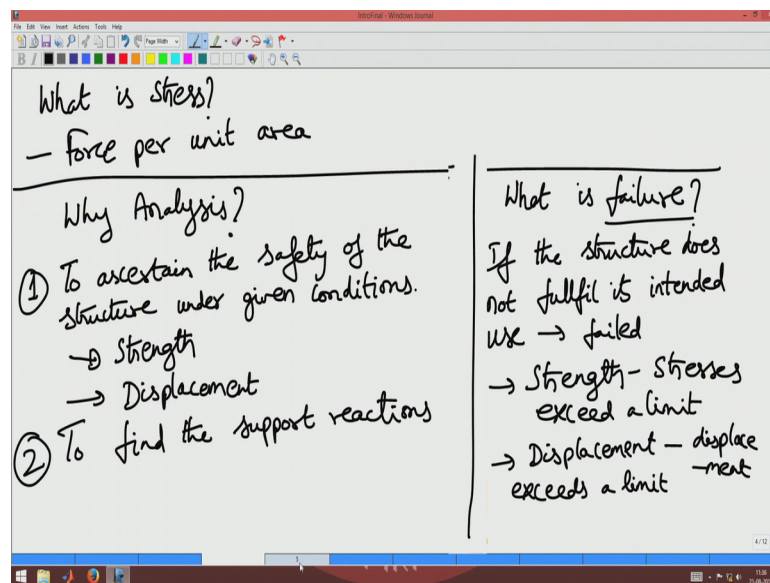 IntroFinal - Windows Journal
File Edit View Insert Actions Tools Help
Page Width
B I
What is stress?
— Force per unit area
Why Analysis?
① To ascertain the safety of the
structure under given conditions.
→ Strength
→ Displacement
② To find the support reactions
What is failure?
If the structure does
not fullfil its intended
use → failed
→ Strength - Stresses
exceed a limit
→ Displacement — displace
-ment
exceeds a limit
4/12
5
11:36